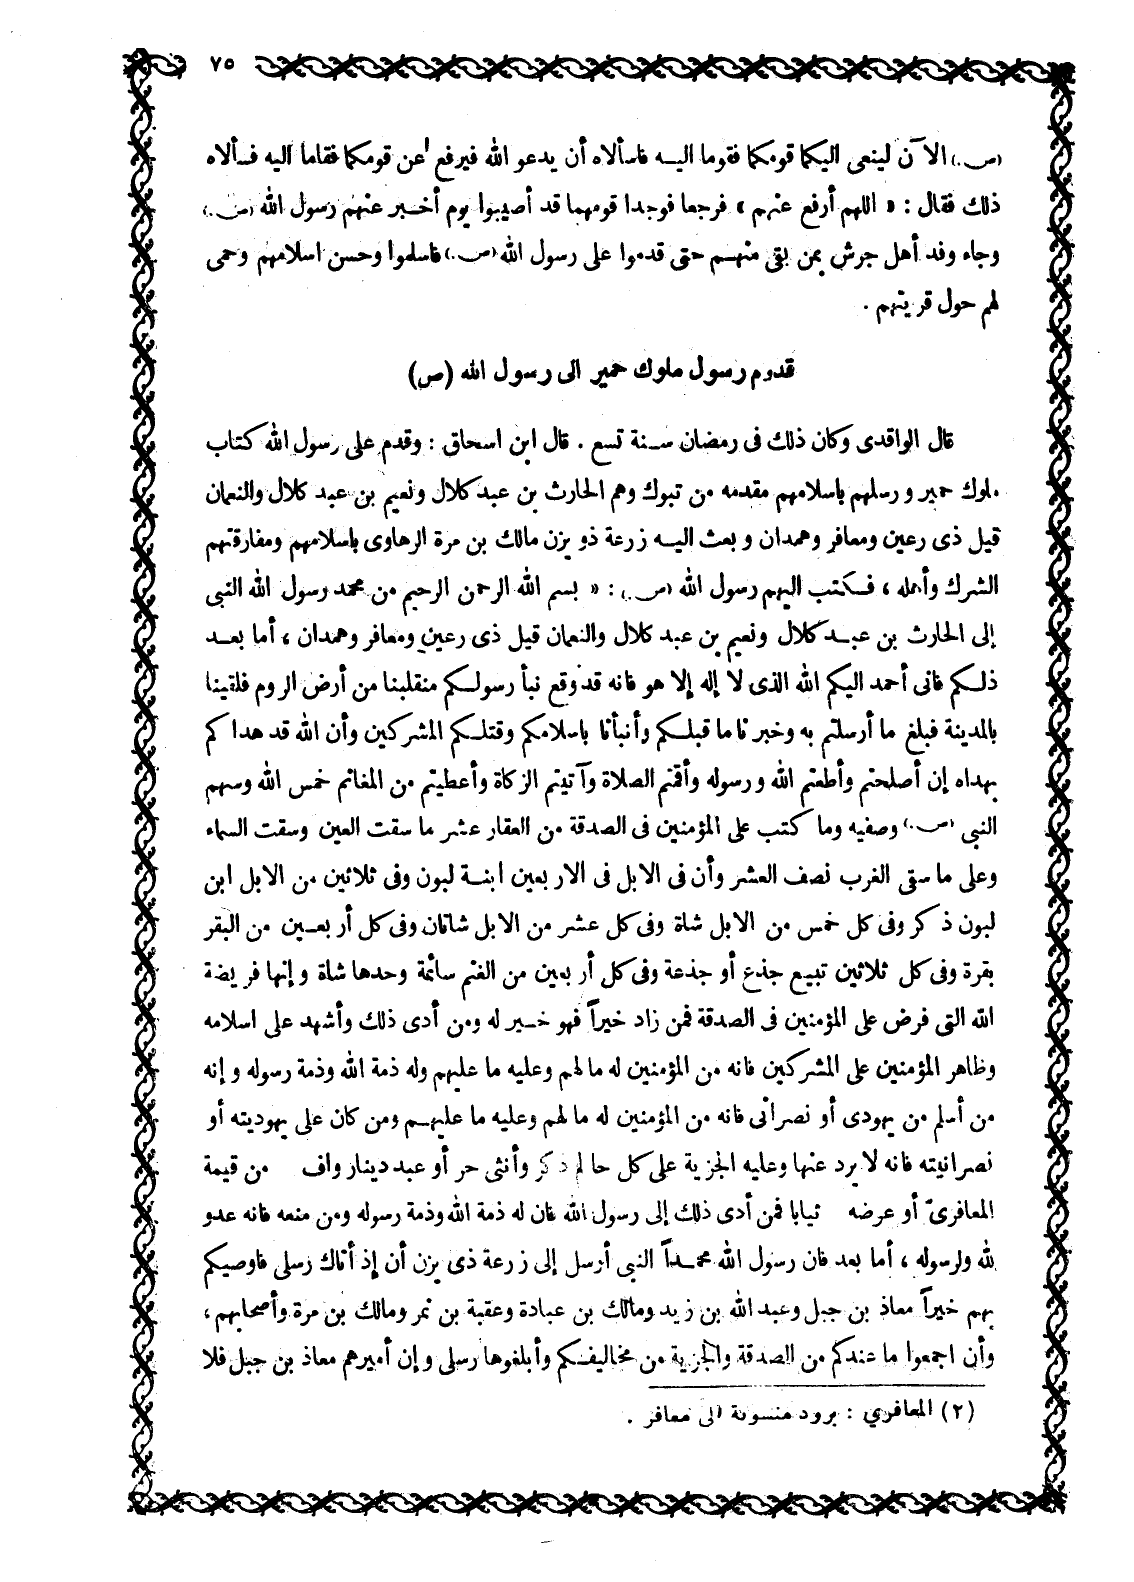 ٧٥
(ص.) الآن لينعى اليكما قومكما فقوما اليه فاسألاه أن يدعو الله فيرفع عن قومكما فقاما اليه فسألاه
ذلك فقال : « اللهم أرفع عنهم » فرجعا فوجدا قومهما قد أصيبوا يوم أخبر عنهم رسول الله (ص.)
وجاء وفد أهل جرش بمن بقى منهم حتى قدموا على رسول الله (ص.) فاسلموا وحسن اسلامهم وحمى
لهم حول قريتهم .
قدوم رسول ملوك حمير الى رسول الله (ص)
قال الواقدى وكان ذلك فى رمضان سنة تسع . قال ابن اسحاق : وقدم على رسول الله كتاب
ملوك حمير ورسلهم باسلامهم مقدمه من تبوك وهم الحارث بن عبد كلال ونعيم بن عبد كلال والنعمان
قيل ذى رعين ومعافر وهمدان وبعث اليه زرعة ذو يزن مالك بن مرة الرهاوى باسلامهم ومفارقتهم
الشرك وأهله ، فكتب اليهم رسول الله (ص.) : « بسم الله الرحمن الرحيم من محمد رسول الله النبى
إلى الحارث بن عبد كلال ونعيم بن عبد كلال والنعمان قيل ذى رعين ومعافر وهمدان ، أما بعد
ذلكم فانى أحمد اليكم الله الذى لا إله إلا هو فانه قد وقع نبأ رسولكم منقلبنا من أرض الروم فلقينا
بالمدينة فبلغ ما أرسلتم به وخبرنا ما قبلكم وأنبأنا باسلامكم وقتلكم المشركين وأن الله قد هداكم
بهداه إن أصلحتم وأطعتم الله ورسوله وأقمتم الصلاة وآتيتم الزكاة وأعطيتم من المغانم خمس الله وسهم
النبى (ص.) وصفيه وما كتب على المؤمنين فى الصدقة من العقار عشر ما سقت العين وسقت السماء
وعلى ما سقى الغرب نصف العشر وأن فى الابل فى الاربعين ابنة لبون وفى ثلاثين من الابل ابن
لبون ذكر وفى كل خمس من الابل شاة وفى كل عشر من الابل شاتان وفى كل أربعين من البقر
بقرة وفى كل ثلاثين تبيع جذع أو جذعة وفى كل أربعين من الغنم سائمة وحدها شاة وإنها فريضة
الله التى فرض على المؤمنين فى الصدقة فمن زاد خيراً فهو خير له ومن أدى ذلك وأشهد على اسلامه
وظاهر المؤمنين على المشركين فانه من المؤمنين له ما لهم وعليه ما عليهم وله ذمة الله وذمة رسوله وإنه
من أسلم من يهودى أو نصرانى فانه من المؤمنين له ما لهم وعليه ما عليهم ومن كان على يهوديته أو
نصرانيته فانه لا يرد عنها وعليه الجزية على كل حالم ذكر وأنثى حر أو عبد دينار واف من قيمة
المعافرىّ أو عرضه ثيابا فمن أدى ذلك إلى رسول الله فان له ذمة الله وذمة رسوله ومن منعه فانه عدو
لله ولرسوله ، أما بعد فان رسول الله محمداً النبى أرسل إلى زرعة ذى يزن أن إذ أتاك رسلى فاوصيكم
بهم خيراً معاذ بن جبل وعبد الله بن زيد ومالك بن عبادة وعقبة بن نمر ومالك بن مرة وأصحابهم ،
وأن اجمعوا ما عندكم من الصدقة والجزية من مخاليفكم وأبلغوها رسلى وإن أميرهم معاذ بن جبل فلا
(٢) المعافري : برود منسوبة الى معافر .